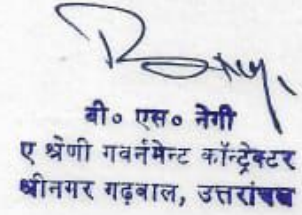 बी० एस० नेगी
ए श्रेणी गवर्नमेन्ट कॉन्ट्रेक्टर
श्रीनगर गढ़वाल, उत्तरांचल